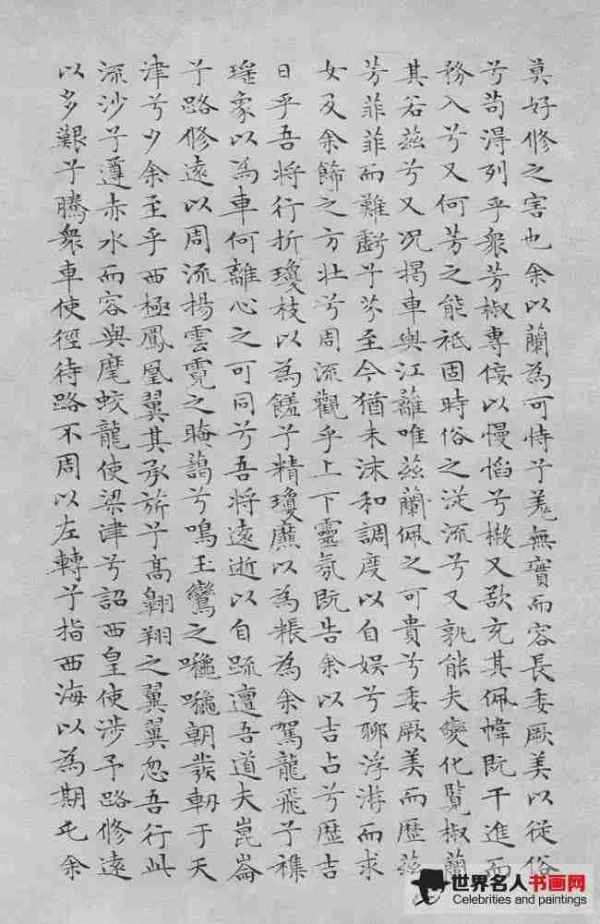 莫好修之害也余以蘭為可恃兮羌無實而容長委厥美以從俗
兮苟得列乎衆芳椒專佞以慢慆兮樧又欲充其佩幃既干進而
務入兮又何芳之能祗固時俗之從流兮又孰能夫變化覽椒蘭
其若茲兮又況揭車與江離唯茲蘭佩之可貴兮委厥美而歷茲
芳菲菲而難虧兮芬至今猶未沫和調度以自娛兮聊浮游而求
女及余飾之方壯兮周流觀乎上下靈氛既告余以吉占兮歷吉
日乎吾將行折瓊枝以為饈兮精瓊爢以為粻為余駕龍飛兮襍
瑤象以為車何離心之可同兮吾將遠逝以自疏邅吾道夫崑崙
兮路修遠以周流揚雲霓之晻藹兮鳴玉鸞之朝發軔于天
津兮夕余至乎西極鳳凰翼其承旂兮高翱翔之翼翼忽吾行此
流沙兮遵赤水而容與麾蛟龍使梁津兮詔西皇使涉予路修遠
以多艱兮騰衆車使徑待路不周以左轉兮指西海以為期屯余
世界名人书画网
Celebrities and paintings